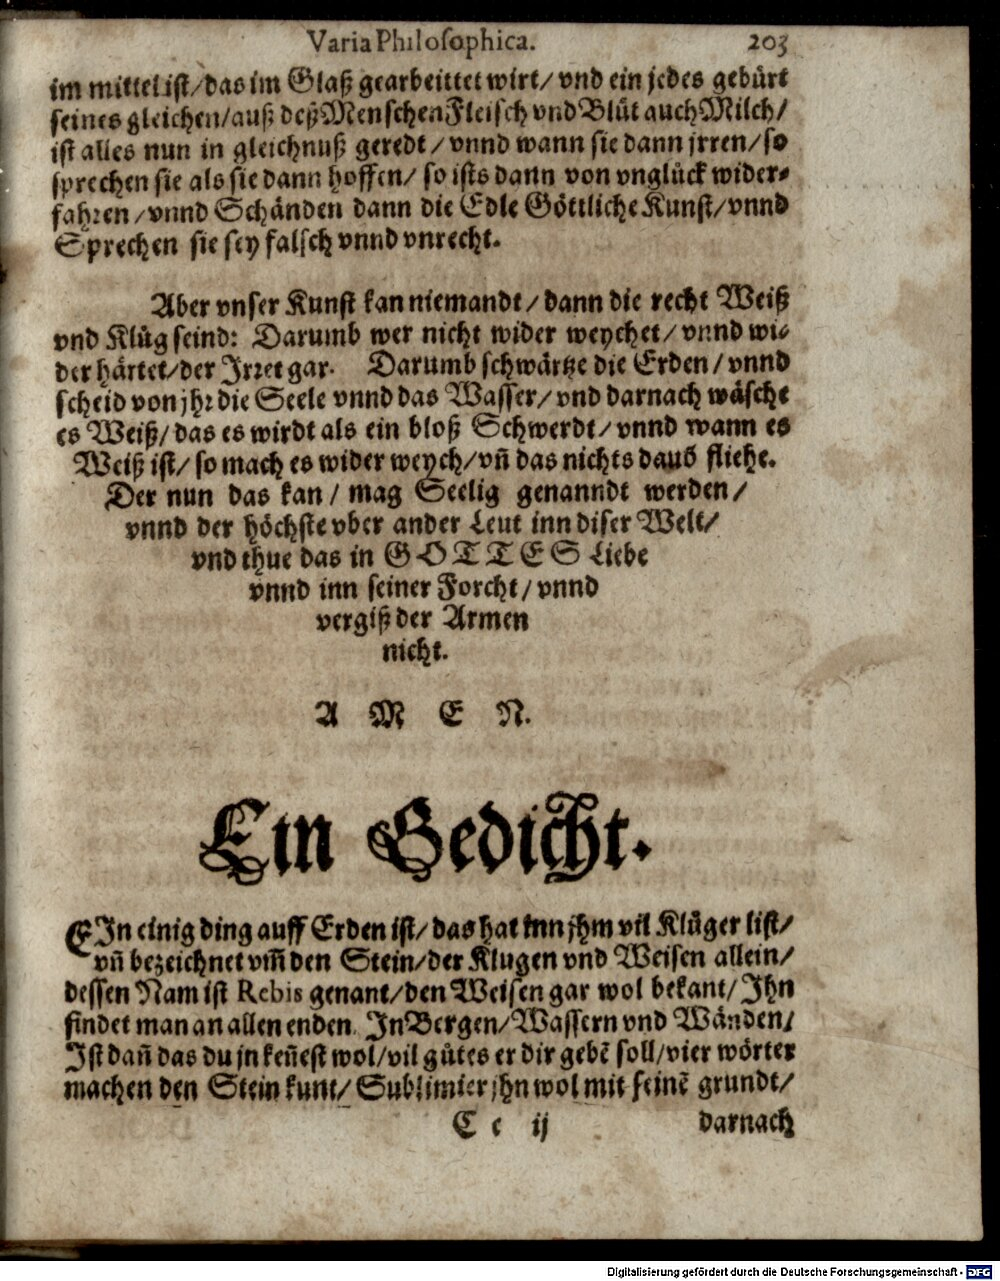 Varia Philosophica. 203
im mittel ist/das im Glaß gearbeittet wirt/ vnd ein jedes gebürt
seines gleichen/auß deß Menschen Fleisch vnd Blůt auch Milch/
ist alles nun in gleichnuß geredt / vnnd wann sie dann jrren/so
sprechen sie als sie dann hoffen/ so ists dann von vnglück wider-
fahren/vnnd Schänden dann die Edle Göttliche Kunst/vnnd
Sprechen sie sey falsch vnnd vnrecht.
Aber vnser Kunst kan niemandt/dann die recht Weiß
vnd Klůg seind: Darumb wer nicht wider weychet/ vnnd wi-
der härtet/der Irret gar. Darumb schwärtze die Erden/vnnd
scheid von jhr die Seele vnnd das Wasser/vnd darnach wäsche
es Weiß/das es wirdt als ein bloß Schwerdt/vnnd wann es
Weiß ist/ so mach es wider weych/vñ das nichts dauõ fliehe.
Der nun das kan/ mag Seelig genanndt werden/
vnnd der höchste vber ander Leut inn diser Welt/
vnd thue das in GOTTES Liebe
vnnd inn seiner Forcht/vnnd
vergiß der Armen
nicht.
A M E N.
Ein Gedicht.
EIn einig ding auff Erden ist/das hat inn jhm vil Klůger list/
vñ bezeichnet vm̃ den Stein/der Klugen vnd Weisen allein/
dessen Nam ist Rebis genant/den Weisen gar wol bekant/Ihn
findet man an allen enden. In Bergen/Wassern vnd Wänden/
Ist dañ das du jn keñest wol/vil gůtes er dir gebẽ soll/vier wörter
machen den Stein kunt/ Sublimier jhn wol mit seinẽ grundt/
C c ij darnach
Digitalisierung gefördert durch die Deutsche Forschungsgemeinschaft - DFG